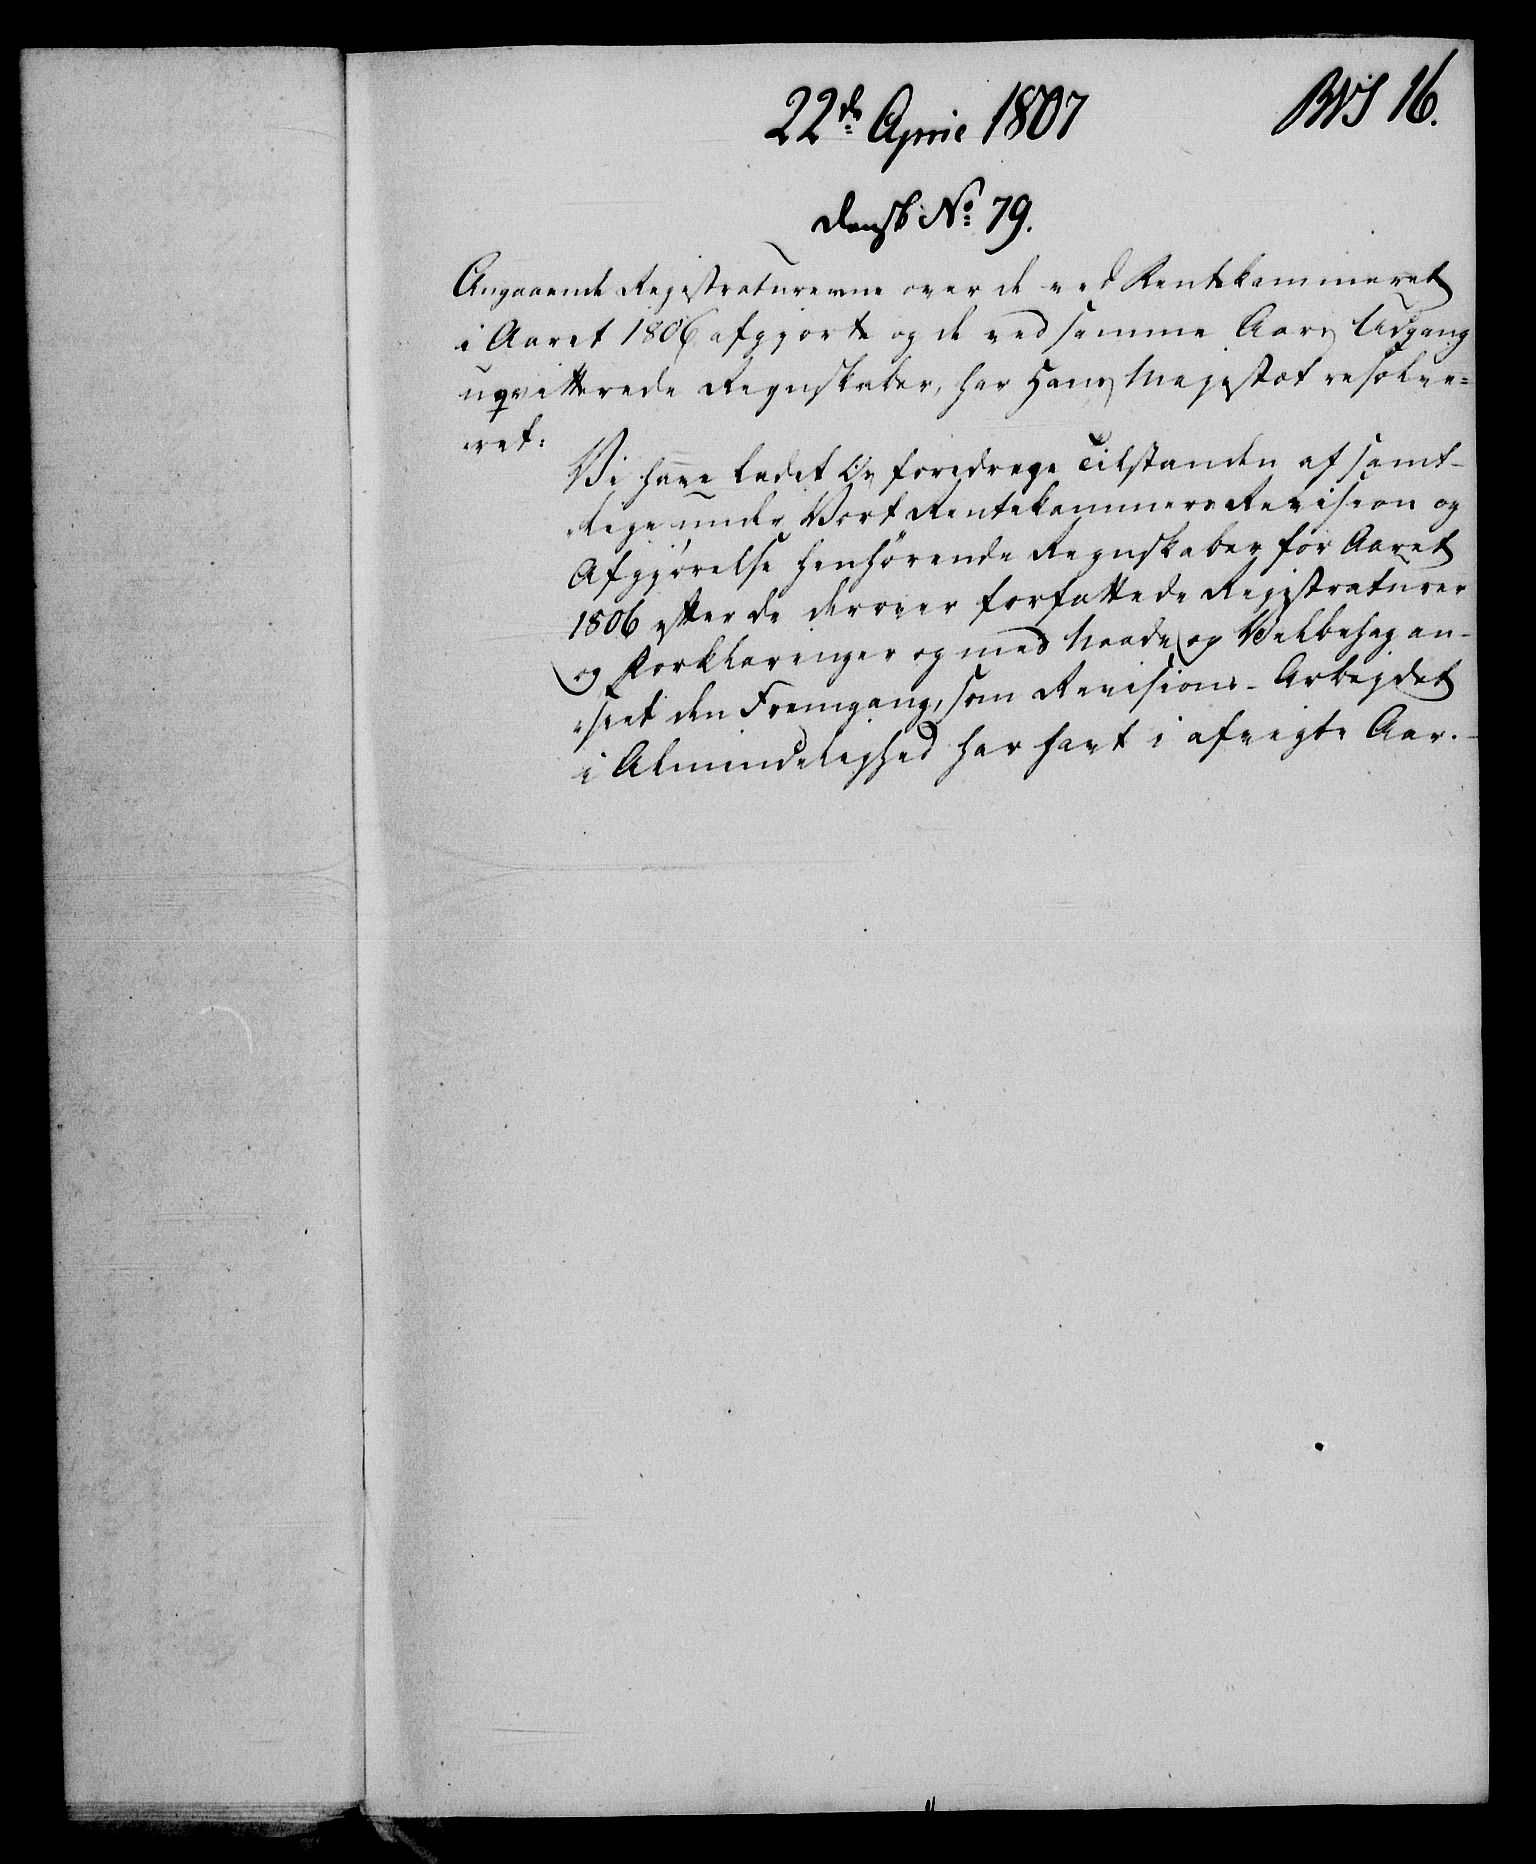 22de April 1807
16.
Dansk No: 79.
Angaaende Registraturerne over de ved Rentekammeret
i Aaret 1806 afgjorte og de ved samme Aars Udgang
uqvitterede Regnskaber, har Hans Majestæt resolve=
ret:
Vi have ladet Os foredrage Tilstanden af samt-
lige under Vort Rentekammers Revision og
Afgjørelse henhørende Regnskaber for Aaret
1806 efter de derover forfattede Registraturer
og Forklaringer og med Naade og Velbehag an-
seet den Fremgang, som Revisions-Arbejdet
i Almindelighed har havt i afvigte Aar.-